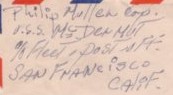 Philip Mullen Cox.
U.S.S. McDermut
% Fleet Post Off.
San Francisco
Calif.